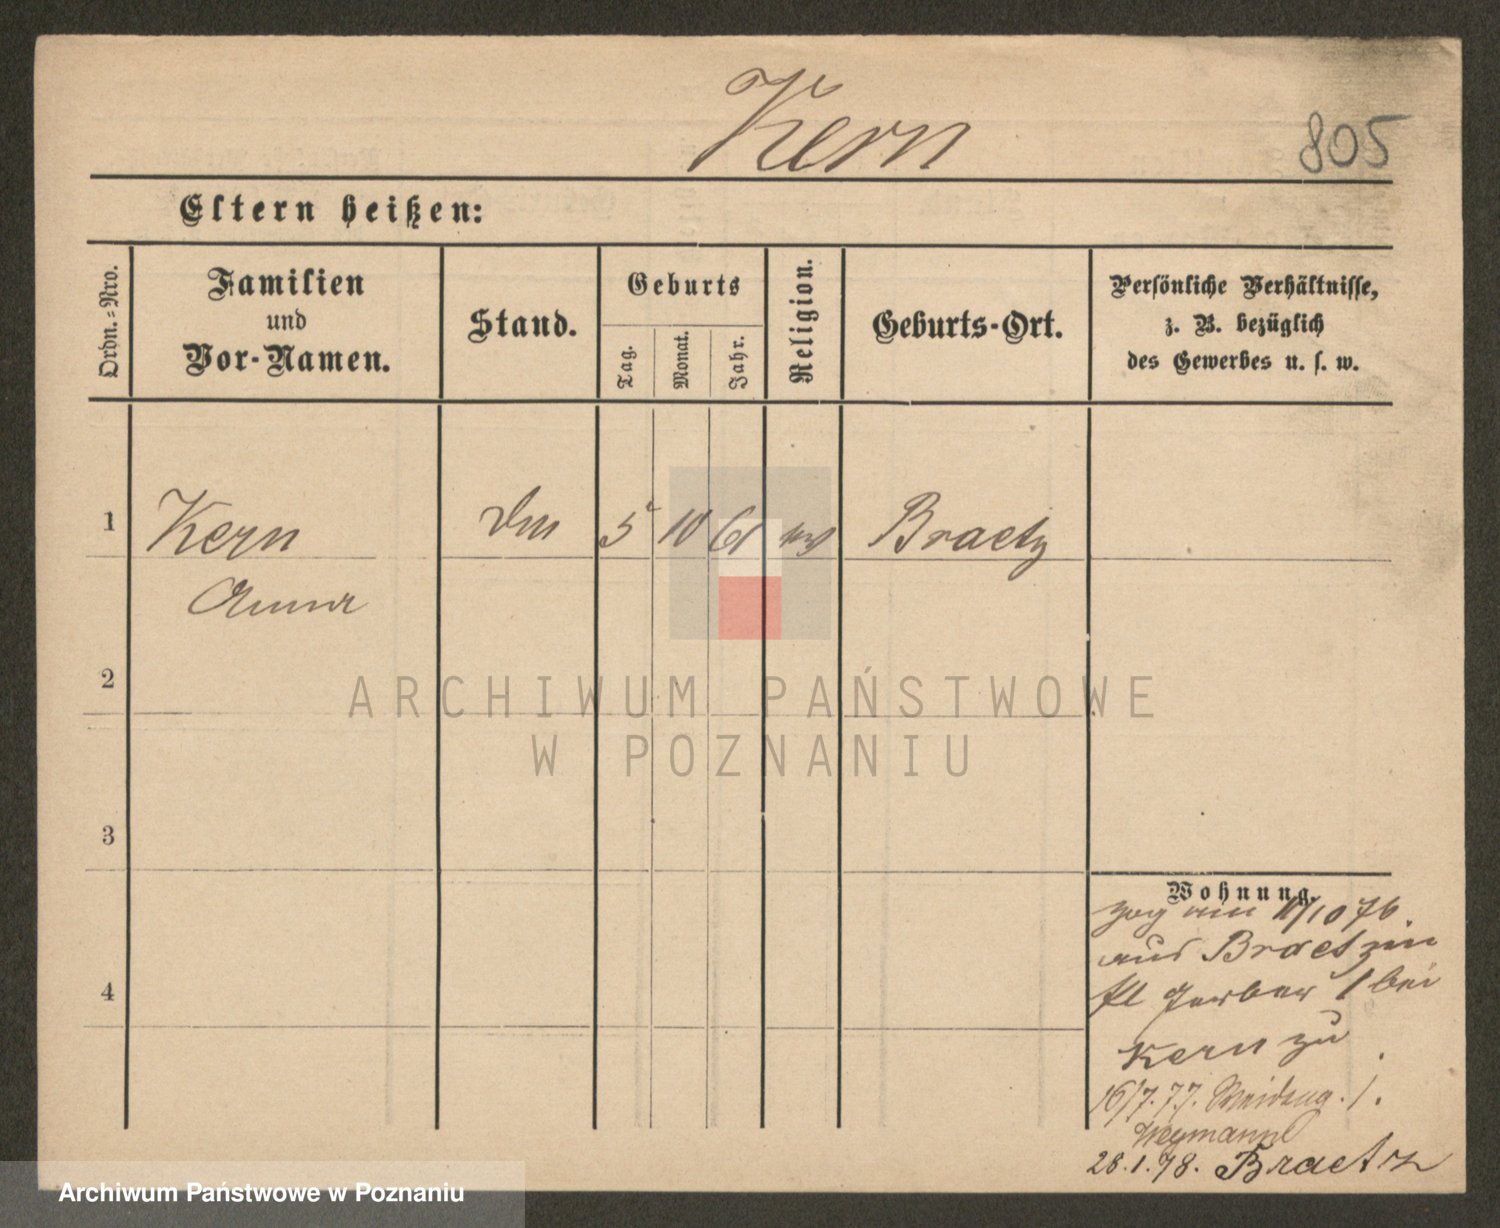 Kern
805
Eltern heißen:
Ordn.-Nro.
Familien
und
Vor-Namen.
Stand.
Geburts
Tag.
Monat.
Jahr.
Religion.
Geburts-Ort.
Persönliche Verhältnisse,
z. B. bezüglich
des Gewerbes u. s. w.
1
Kern
5
10
61
Braetz
Anna
2
ARCHIWUM PAŃSTWOWE
W POZNANIU
3
Wohnung.
zog am 11/10 76.
aus Braetz in
kl Gerber 1 bei
4
Kern zu
16/7.77.
Wegmann
28.1.78. Braetz
Archiwum Państwowe w Poznaniu